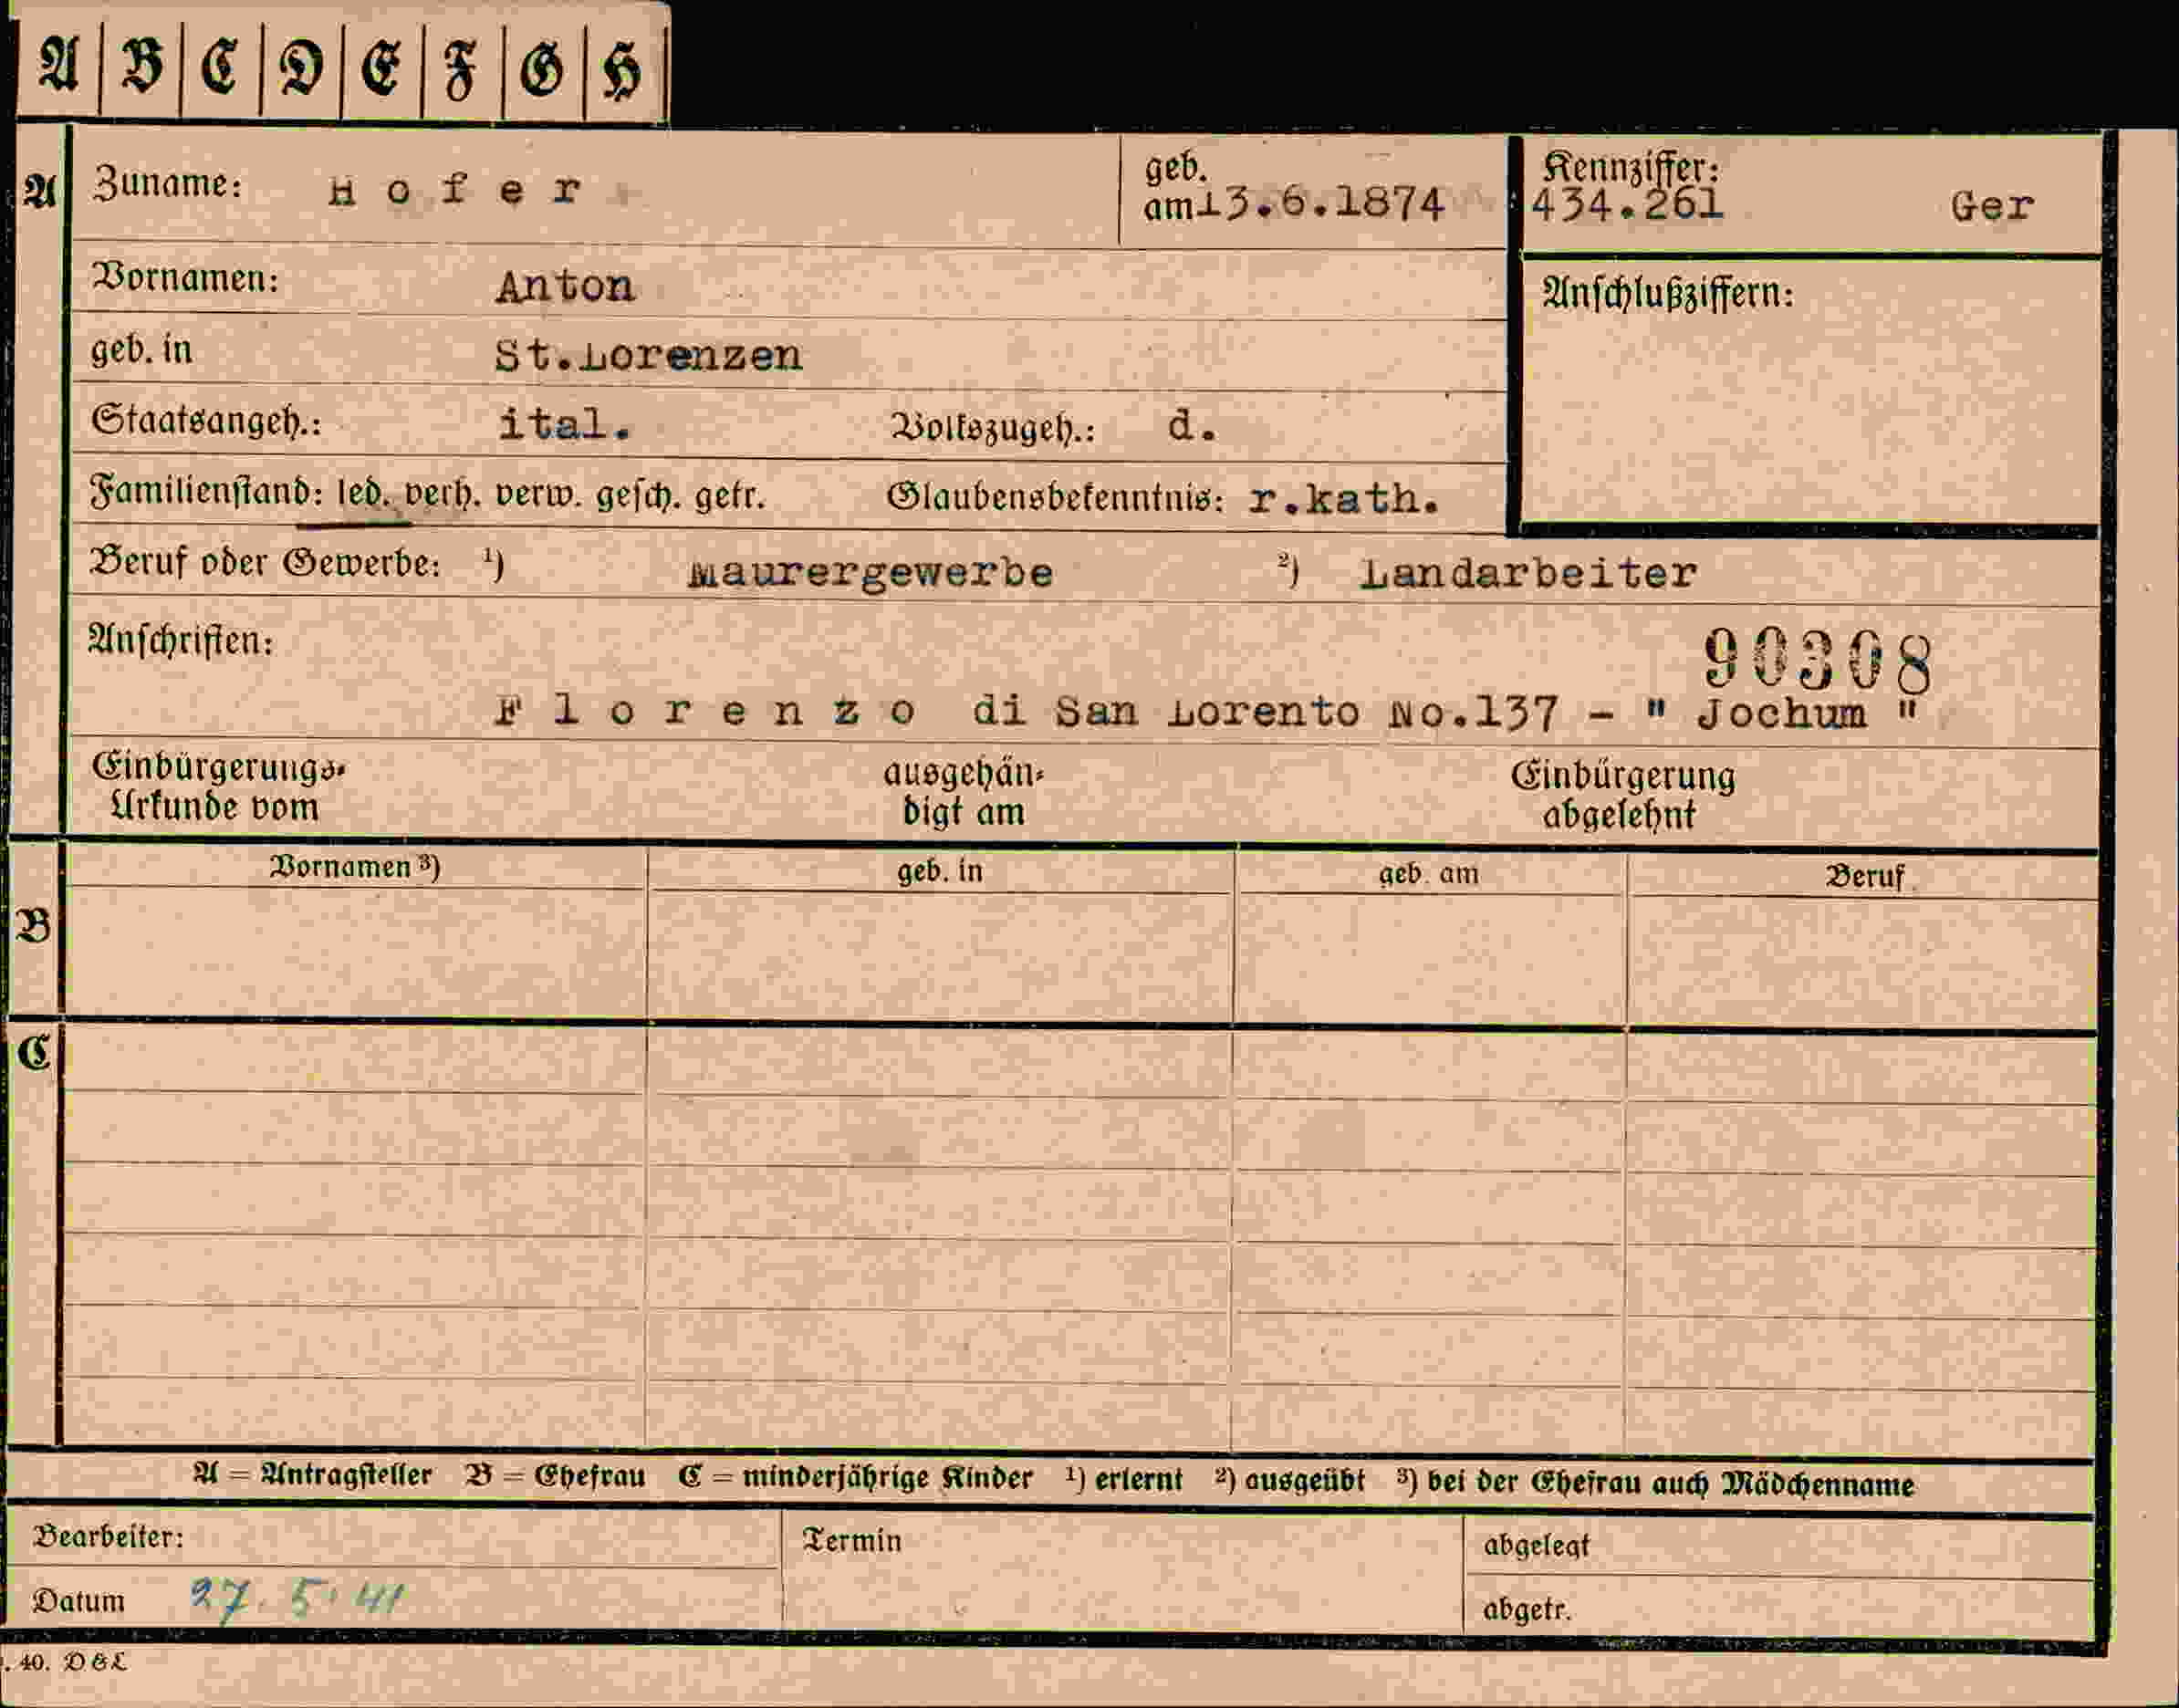 A | B | C | D | E | F | G | H
A Zuname: Hofer geb. am 13.6.1874 Kennziffer: 434.261 Ger
Vornamen: Anton Anschlußziffern:
geb. in St.Lorenzen
Staatsangeh.: ital. Volkszugeh.: d.
Familienstand: led. verh. verw. gesch. getr. Glaubensbekenntnis: r.kath.
Beruf oder Gewerbe: ¹) Maurergewerbe ²) Landarbeiter
Anschriften: 90308
Florenzo di San Lorento No.137 - " Jochum "
Einbürgerungs- ausgehän- Einbürgerung
Urkunde vom digt am abgelehnt
Vornamen ³) geb. in geb. am Beruf
B
C
A = Antragsteller B = Ehefrau C = minderjährige Kinder ¹) erlernt ²) ausgeübt ³) bei der Ehefrau auch Mädchenname
Bearbeiter: Termin abgelegt
Datum 27. 5. 41 abgetr.
. 40. D & L